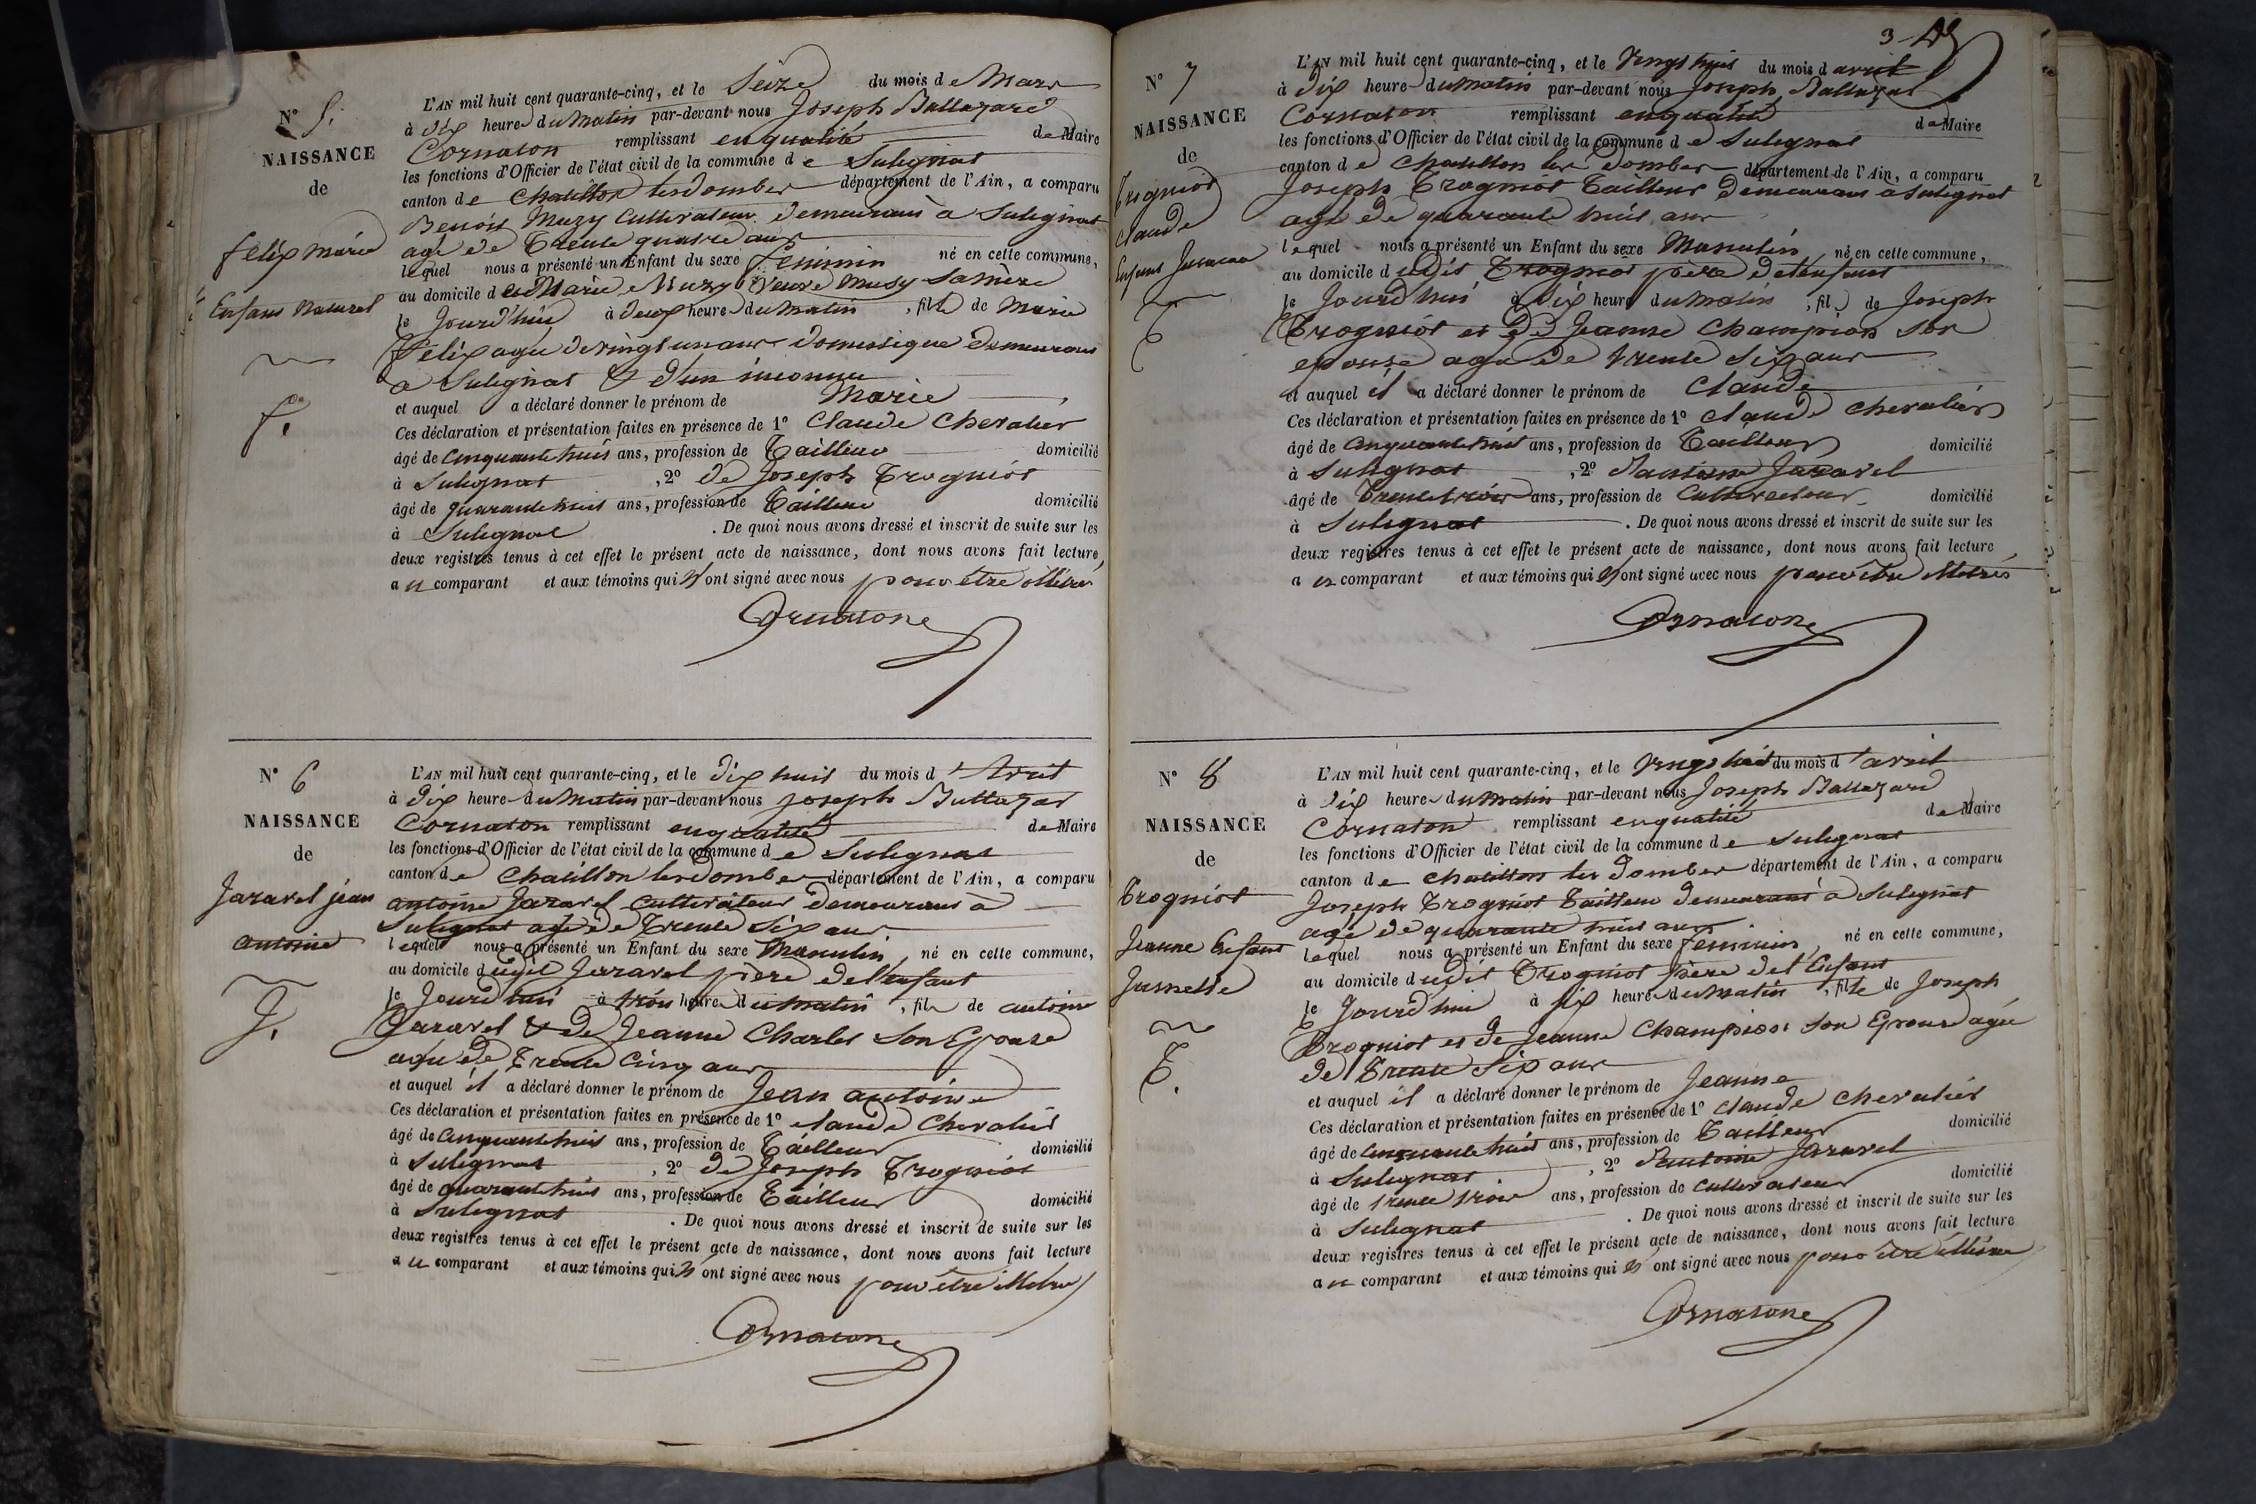 N° 5.
NAISSANCE
de
felix marie
Enfant Naturel
f.
L'AN mil huit cent quarante-cinq, et le Seize du mois de Mars
à dix heure du Matin par-devant nous Joseph Baltazard
Cornaton remplissant en qualité de Maire
les fonctions d'Officier de l'état civil de la commune de Sulignat
canton de Chatillon les Dombes département de l'Ain, a comparu
Benoit Muzy Cultivateur demeurant a Sulignat
agé de Trente quatre ans
lequel nous a présenté un Enfant du sexe feminin né en cette commune,
au domicile de Marie Muzy Veuve Musy sa mère
le Jourd'hui à deux heure du Matin, fille de Marie
félix agée de vingt un ans domestique demeurant
a Sulignat & d'un inconnu
et auquel a déclaré donner le prénom de Marie
Ces déclaration et présentation faites en présence de 1° Claude Chevalier
âgé de Cinquante huit ans, profession de Tailleur domicilié
à Sulignat, 2° de Joseph Trogniot
âgé de quarante huit ans, profession de Tailleur domicilié
à Sulignat. De quoi nous avons dressé et inscrit de suite sur les
deux registres tenus à cet effet le présent acte de naissance, dont nous avons fait lecture
au comparant et aux témoins qui n'ont signé avec nous pour être illitéré
Cornatone
N° 6
NAISSANCE
de
Jaravel jean
antoine
J.
L'AN mil huit cent quarante-cinq, et le dix huit du mois d'Avril
à dix heure du Matin par-devant nous Joseph Baltazar
Cornaton remplissant en qualité de Maire
les fonctions d'Officier de l'état civil de la commune de Sulignat
canton de Chatillon les Dombes département de l'Ain, a comparu
antoine Jaravel cultivateur demeurant à
Sulignat agé de Trente Six ans
lequel nous a présenté un Enfant du sexe Masculin, né en cette commune,
au domicile dudit Jaravel père de l'enfant
le Jourd'hui à trois heure du matin, fils de antoine
Jaravel & de Jeanne Charles Son Epouse
agée de Trente Cinq ans
et auquel il a déclaré donner le prénom de Jean antoine
Ces déclaration et présentation faites en présence de 1° claude Chevalier
âgé de Cinquante huit ans, profession de Tailleur domicilié
à Sulignat, 2° de Joseph Trogniot
âgé de quarante huit ans, profession de Tailleur domicilié
à Sulignat. De quoi nous avons dressé et inscrit de suite sur les
deux registres tenus à cet effet le présent acte de naissance, dont nous avons fait lecture
au comparant et aux témoins qui n'ont signé avec nous pour être illitéré
Cornatone
3
N° 7
NAISSANCE
de
Trogniot
Claude
Enfant Jumeau
T
L'AN mil huit cent quarante-cinq, et le vingt huit du mois d avril
à dix heure du Matin par-devant nous Joseph Baltazar
Cornaton remplissant en qualité de Maire
les fonctions d'Officier de l'état civil de la commune de Sulignat
canton de Chatillon les Dombes département de l'Ain, a comparu
Joseph Trogniot Tailleur demeurant a Sulignat
agé de quarante huit ans
lequel nous a présenté un Enfant du sexe Masculin, né en cette commune,
au domicile dudit Trogniot père de l'enfant
le Jourd'hui à dix heure du Matin, fils de Joseph
Trogniot et de Jeanne Champion Son
epouse agée de trente Six ans
et auquel il a déclaré donner le prénom de Claude
Ces déclaration et présentation faites en présence de 1° claude chevalier
âgé de Cinquante huit ans, profession de Tailleur domicilié
à Sulignat, 2° d'antoine Jaravel
âgé de Trente trois ans, profession de Cultivateur domicilié
à Sulignat. De quoi nous avons dressé et inscrit de suite sur les
deux registres tenus à cet effet le présent acte de naissance, dont nous avons fait lecture
au comparant et aux témoins qui n'ont signé avec nous pour être illitérés
Cornatone
N° 8
NAISSANCE
de
Trogniot
Jeanne Enfant
Jumelle
T.
L'AN mil huit cent quarante-cinq, et le vingt huit du mois d'avril
à dix heure du Matin par-devant nous Joseph Baltazard
Cornaton remplissant en qualité de Maire
les fonctions d'Officier de l'état civil de la commune de Sulignat
canton de Chatillon les Dombes département de l'Ain, a comparu
Joseph Trogniot Tailleur demeurant a Sulignat
agé de quarante huit ans
lequel nous a présenté un Enfant du sexe feminin, né en cette commune,
au domicile dudit Trogniot père de l'Enfant
le Jourd'hui à dix heure du Matin, fille de Joseph
Trogniot et de Jeanne Champion Son Epouse agée
de Trente Six ans
et auquel il a déclaré donner le prénom de Jeanne
Ces déclaration et présentation faites en présence de 1° claude chevalier
âgé de Cinquante huit ans, profession de Tailleur domicilié
à Sulignat, 2° d'antoine Jaravel
âgé de trente trois ans, profession de cultivateur domicilié
à Sulignat. De quoi nous avons dressé et inscrit de suite sur les
deux registres tenus à cet effet le présent acte de naissance, dont nous avons fait lecture
au comparant et aux témoins qui n'ont signé avec nous pour être illitéré
Cornatone